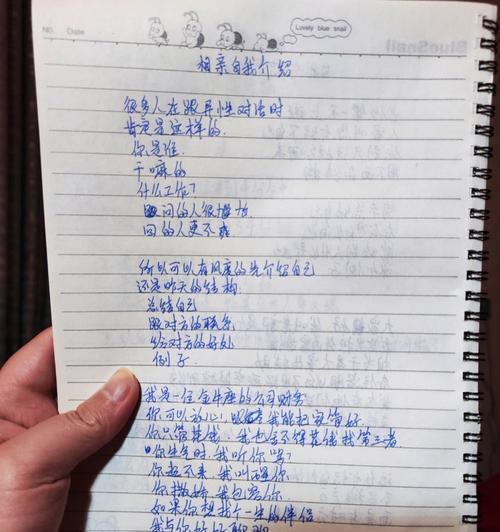 NO.
Date
Lovely blue snail
BlueSnail
相亲自我介绍
很多人在跟异性对话时
肯定是这样的.
你是谁.
干嘛的
什么工作?
问的人很尴尬
回的人更不爽
所以可以有风度的先介绍自己
还是昨天的结构.
总结自己
跟对方的联系
给对方的好处
例子
我是一位金牛座的公司财务
你可以放心,跟我能把家管好.
你只管其钱,我也舍不得其钱找第三者
你生气时,我听你骂?
你起不来,我叫醒你
你撒娇,我包容你
如果你想找个一生的伴侣
我与你好好聊聊